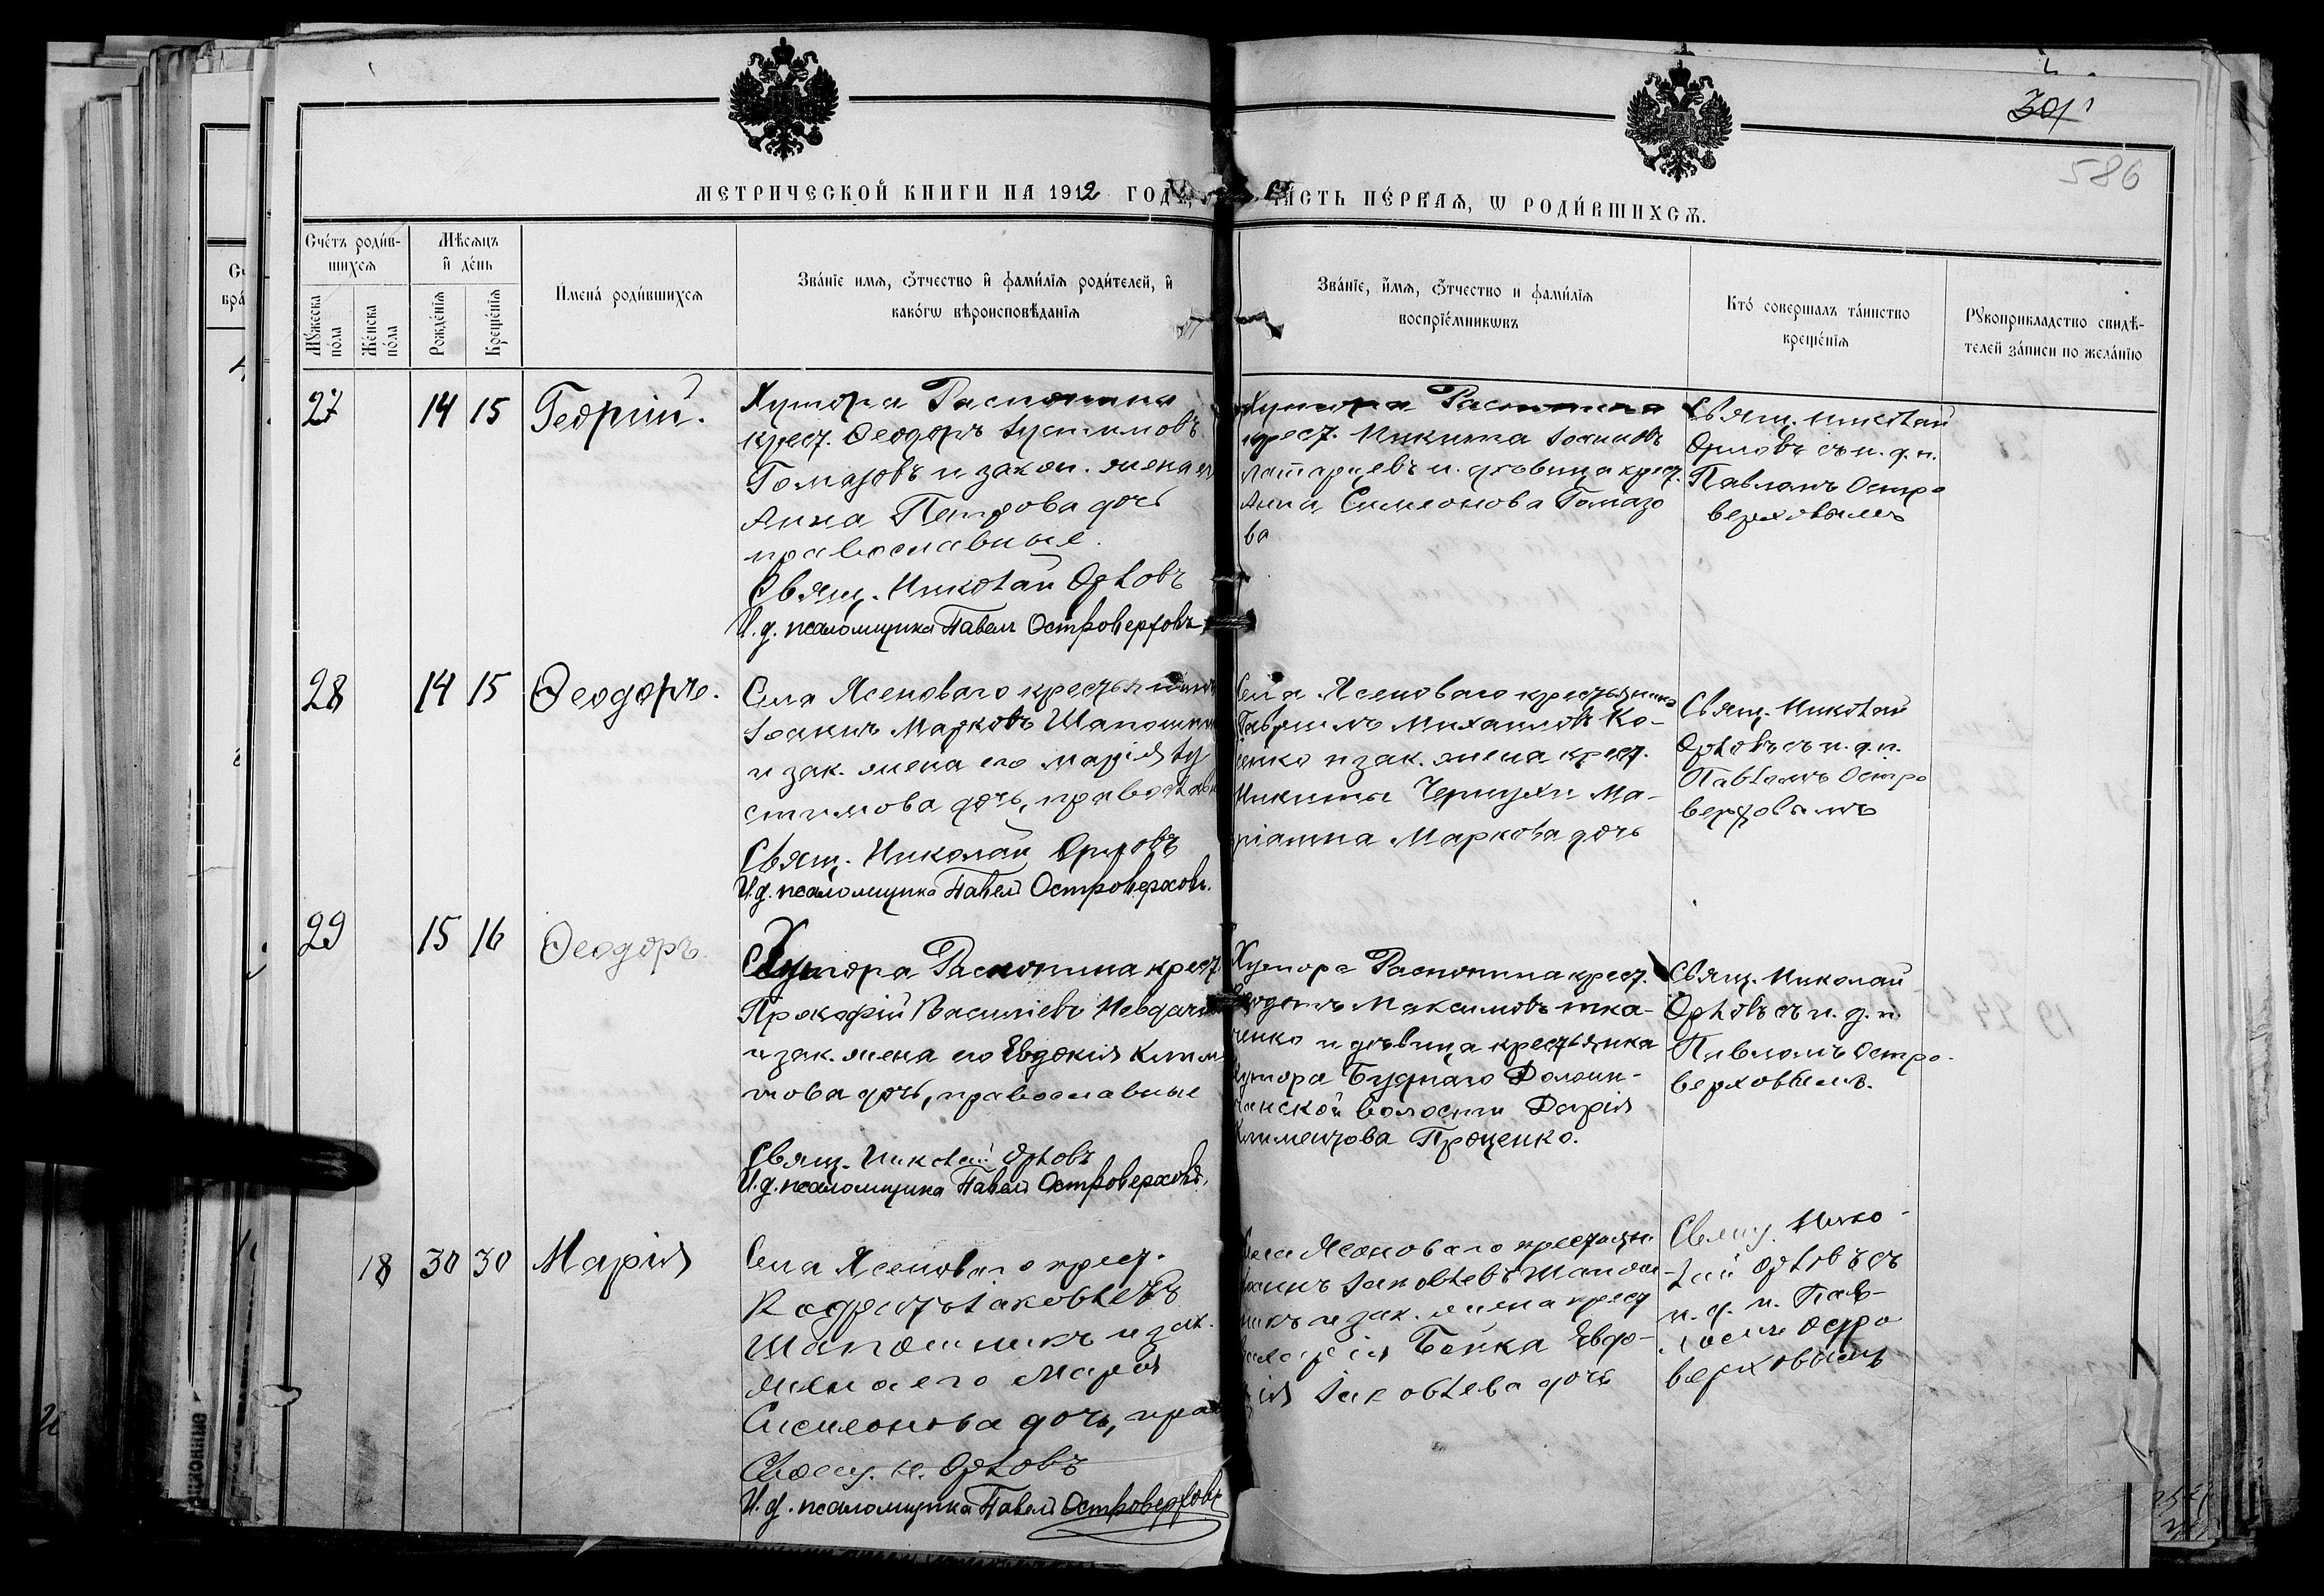 301
586
МЕТРИЧЕСКОЙ КНИГИ НА 1912 ГОДЪ,
ЧАСТЬ ПЕ́РВАЯ, Ѡ РОДИ́ВШИХСѦ.
Сче́тъ роди́в-
шихсѧ
Мѣсѧцъ
и҆ де́нь
Мꙋ́жеска
по́ла
Же́нска
по́ла
Рожде́нїѧ
Креще́нїѧ
И҆мена̀ роди́вшихсѧ
Зва́нїе имѧ, ѻ҆́тчество и҆ фами́лїѧ роди́телей, и҆
како́гѡ вѣроисповѣ́данїѧ
Зва́нїе, и҆́мѧ, ѻ҆́тчество и фами́лїѧ
воспрїе́мникѡвъ
Кто́ соверша́лъ та́инство
креще́нїѧ
Рꙋкоприкладство свидѣ́-
телей за́писи по жела́нїю
27
14
15
Георгій.
Хутора Распопина
крест. Ѳеодоръ Іустимовъ
Гомазовъ и закон. жена его
Анна Петрова дочь
православные.
Свящ. Николай Орловъ
И. д. псаломщика Павелъ Островерховъ
Хутора Распопина
крест. Никита Іоанновъ
и дѣвица крест.
Анна Симеонова Гомазо
ва
Свящ. Николай
Орловъ съ и. д. п.
Павломъ Остро
верховымъ
28
14
15
Ѳеодоръ.
Села Ясеноваго крестьянинъ
Іоакимъ Марковъ
и зак. жена его Марія Іу
стимова дочь, православн
Свящ. Николай Орловъ
И. д. псаломщика Павелъ Островерховъ.
Села Ясеноваго крестьянинъ
Гавріилъ Михаиловъ Ко-
ценко и зак. жена крест.
Никиты Чернухи Ма-
ріанна Маркова дочь
Свящ. Николай
Орловъ съ и. д. п.
Павломъ Остро
верховымъ
29
15
16
Ѳеодоръ.
Хутора Распопина крест.
Прокофій Василіевъ
и зак. жена его Евдокія Климен
това дочь, православные
Свящ. Николай Орловъ
И. д. псаломщика Павелъ Островерховъ.
Хутора Распопина крест.
Максимовъ Тка-
ченко и дѣвица крестьянка
хутора Буднаго
волости Дарія
Климентова Проценко.
Свящ. Николай
Орловъ съ и. д. п.
Павломъ Остро-
верховымъ.
18
30
30
Марія
Села Ясеноваго крест.
Кодратъ Іаковлевъ
Шапошникъ и зак.
жена его Марія
Симеонова дочь, прав
Свящ. Н. Орловъ
И. д. псаломщика Павелъ Островерховъ
Села Ясеноваго крестьянинъ
Іаковлевъ Шапош
никъ и зак. жена крест
Захарія Бойка Евдо-
кія Іаковлева дочь
Свящ. Нико-
лай Орловъ съ
и. д. п. Пав-
ломъ Остро
верховымъ